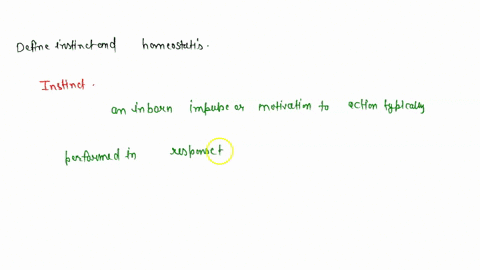 Define instinct and homeostatis.
Instinct.
an inborn impulse or motivation to action typically
performed in response t